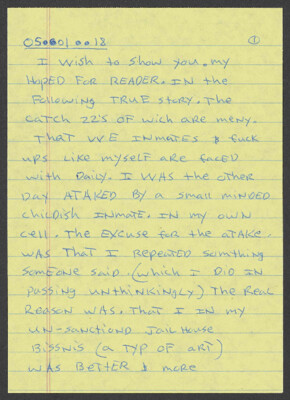 050601 00.18
①
I wish to show you. my
HOPED FOR READER. IN the
Following TRUE story. The
CATCH 22'S OF wich are meny.
THAT WE INMATES & fuck
ups Like myself are faced
with Daily. I WAS the other
Day ATAKED BY a small minded
childish INMATE. IN my own
cell. The Excuse for the aTAKE.
WAS THAT I REPEATED somthing
someone said. (which I DID IN
passing unthinkingly) The Real
Reason WAS. THAT I IN my
UN-sanctiond Jail House
BISSNIS (a TYP OF art)
WAS BETTER & more